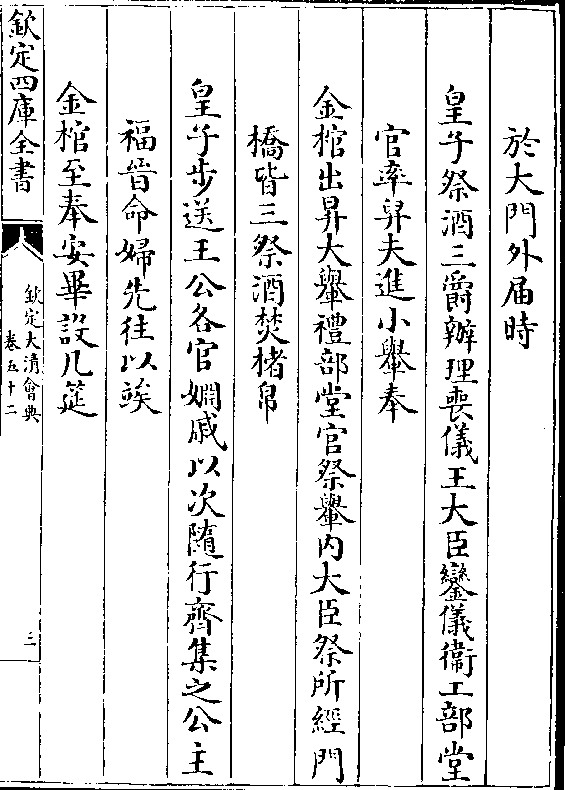 於大門外届時
皇子祭酒三爵辦理喪儀王大臣鑾儀衞工部堂
官率舁夫進小轝奉
金棺出昇大轝禮部堂官祭轝内大臣祭所經門
橋皆三祭酒焚楮帛
皇子步送王公各官姻戚以次隨行齊集之公主
福晉命婦先往以竢
金棺至奉安畢設几筵
欽定四庫全書
欽定大清會典
卷五十二
三